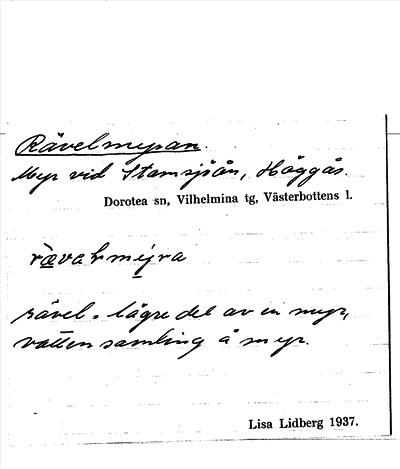 Rävelmyran.
Myr vid Stamsjöån, Häggås.
Dorotea sn, Vilhelmina tg, Västerbottens l.
rävel = lägre del av en myr,
vattensamling å myr.
Lisa Lidberg 1937.